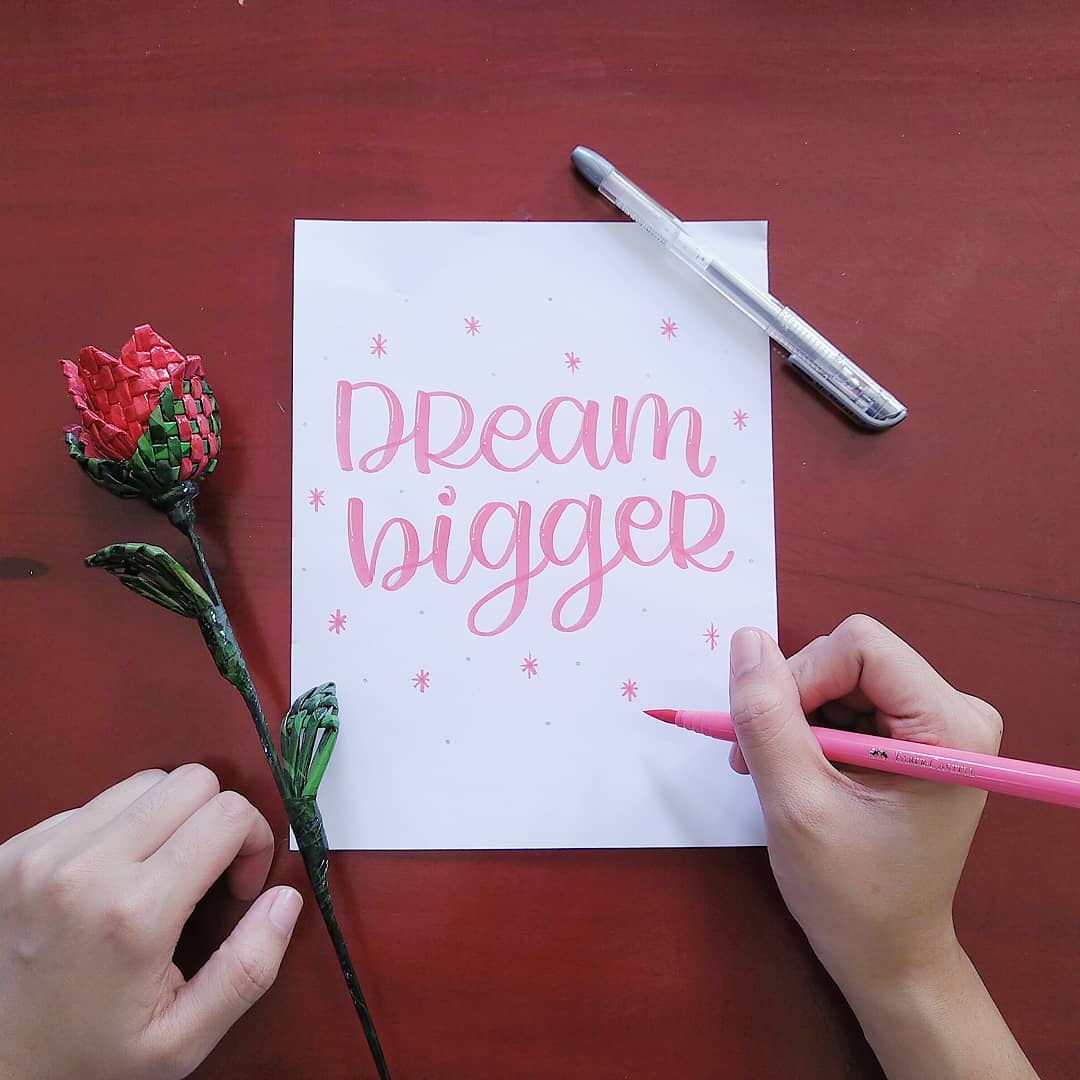 DReam
biggeR
FABER-CASTELL